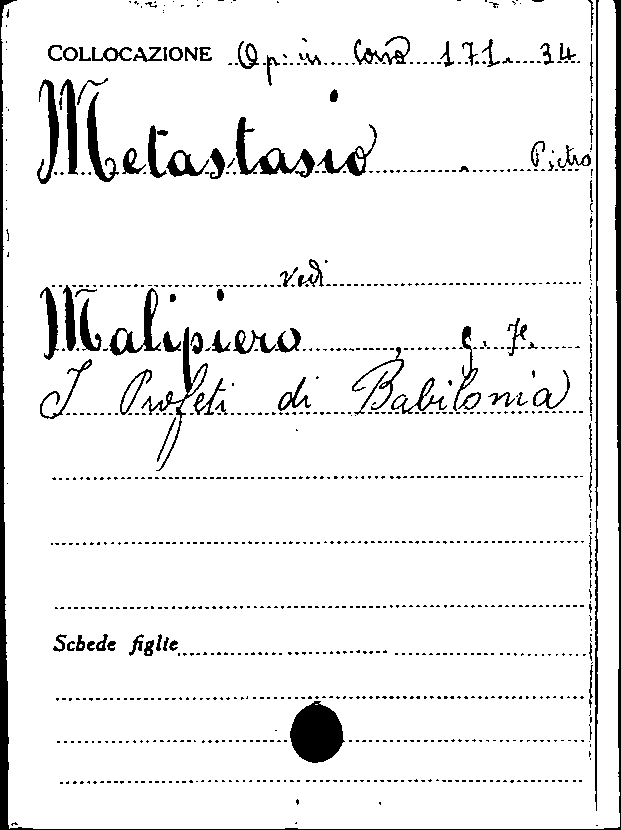 COLLOCAZIONE Op. in Corso 171. 34
Metastasio . Pietro
vedi
Malipiero , G. Fr.
I Profeti di Babilonia
Schede figlie